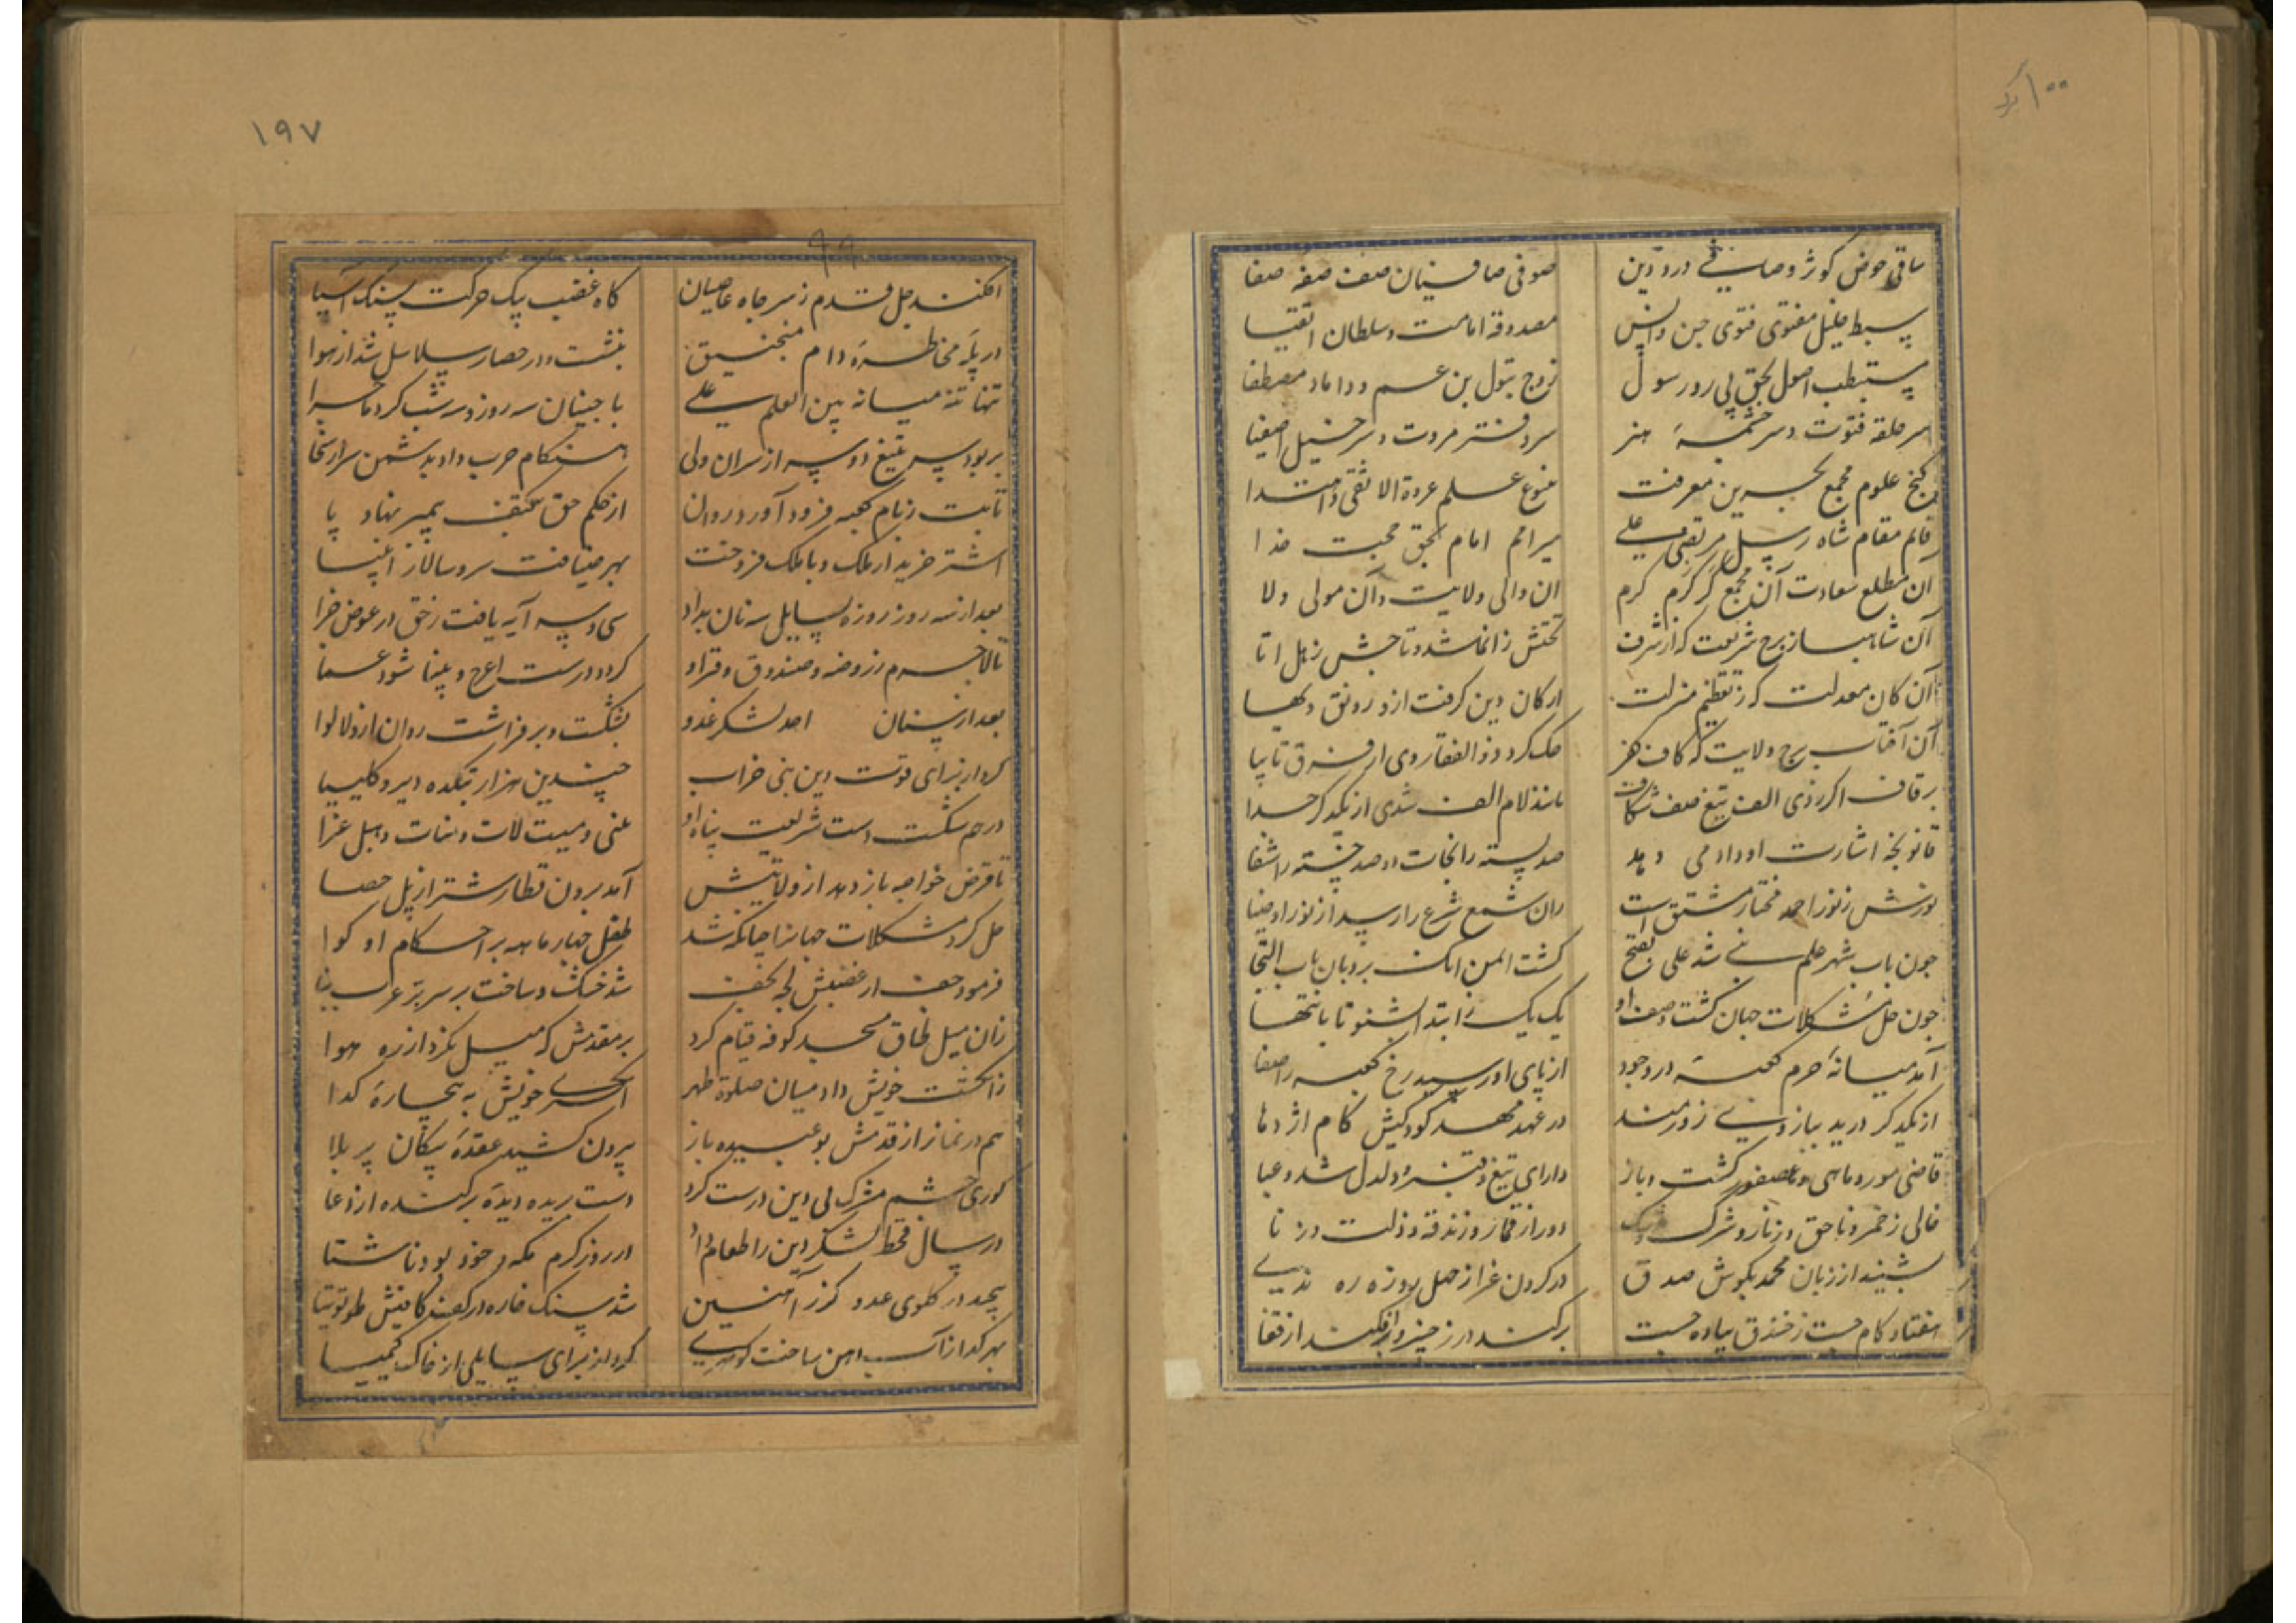 ۱۰۰
ساقی حوض کوثر و صافی درد دین    صوفی صافیان صف صفه صفا
سبط خلیل مفتوی فتوی جن و انس    مصدوقه امامت و سلطان اتقیا
مستبطب اصول بحق پی رو رسول    زوج بتول بن عم و داماد مصطفا
سر حلقه فتوت و سر چشمهٔ هنر    سر دفتر مروت و سر خیل اصفیا
گنج علوم مجمع بحرین معرفت    علم عروة الاثقی و اهتدا
قایم مقام شاه رسل مرتضی علی    امام بحق محبت خدا
آن مطلع سعادت آن مجمع کرم    ان والی ولایت و آن مولی ولا
آن شاهباز برج شریعت که از شرف    تختش ز انما شد و تاجش ز هل اتا
آن کان معدلت کز تعظیم منزلت    ارکان دین کرفت ازو رونق و بها
آن آفتاب برج ولایت که کاف کفر    حک کرد ذوالفقار وی از فرق تا بپا
بر قاف اکر زدی الف تیغ صف شکاف    مانند لام الف شدی از یکدکر جدا
قانونچه اشارت او داد می دهد    صد بسته را نجات و صد خسته را شفا
نورش ز نور احمد مختار مشتق است    زان شمع شرع را رسید از نور او ضیا
چون باب شهر علم نبی شد علی بفتح    کشت المن برو بان باب التجا
چون حل مشکلات جهان کشت وصف او    یک یک ز ابتدا شنو تا بانتها
آمد میانهٔ حرم کعبه در وجود    از پای او رسید رخ کعبه را صفا
از یکدکر درید ببازوی زورمند    در عهد مهد کودکیش کام اژدها
قاضی مور و ماهی و عصفور کشت و باز    دارای تیغ و قنبر و دلدل شد و عبا
خالی ز خمر و ناحق و زنار و شرک    دور از قمار و زندقه و ذلت و زنا
بشنید از زبان محمد بکوش صدق    در کردن غزا ز چهل روزه ره ندی
هفتاد کام جست ز خندق پیاده جست    برکند در ز خیبر و افکند از قفا
۱۹۷
۹۹
افکند چل قدم ز سر چاه عاصیان    کاه غضب بیک حرکت سنک آسیا
در پلهٔ مخاطرهٔ دام منجنیق    بنشست و در حصار سلاسل شد از هوا
تنها تنه میانه بین العلم علی    با جنیان سه روز و سه شب کرد ماجرا
بربود سر بتیغ دو سر از سران ولی    هنکام حرب داد بدشمن سر از سخا
تا بت ز بام کعبه فرود آورد روان    از حکم حق بکتف پیمبر نهاد پا
اشتر خرید از ملک و با ملک فروخت    بهر ضیافت سر و سالار انبیا
بعد از سه روز روزه بسایل سه نان بداد    سی و سه آیه یافت ز حق در عوض جزا
تا لاجرم ز روضه و صندوق و قراو    کردد درست اعرج و بینا شود عما
بعد از سنان احد لشکر عدو    بشکست و بر فراشت روان از ولا لوا
کرد از برای قوت دین نبی خراب    چندین هزار بتکده دیر و کلیسیا
در هم شکست است شریعت پناه او    عزی و میت لات و منات و هبل غزا
تا قرض خواجه باز دهد از ولایتش    آمد برون قطار شتر از پل حصا
حل کرد مشکلات جهانرا چنانکه شد    طفل چهار ماهه بر احکام او کوا
فرمود جف از غضبش لجه نجف    شد خشک و ساخت بر سر بئر بنا
زان میل طاق مسجد کوفه قیام کرد    بر مقدمش که میل نکرد از ره هوا
ز انکشت خویش داد میان صلوة ظهر    انکشتری خویش به بیچارهٔ کدا
هم در نماز از قدمش بو عبیده باز    بیرون کشید عقدهٔ پیکان پر بلا
کوری چشم مشرک بی دین درست کرد    دست بریده دیدهٔ برکنده از دعا
در سال قحط لشکر دین را طعام داد    در روز کرم مکه و خود بود ناشتا
پیچد در کلوی عدو کرز آهنین    شد سنک خاره در کف کافیش طوتیا
بهر کدا ز آسب آهن ساخت کوهری    کرد از برای سایلی از خاک کیمیا